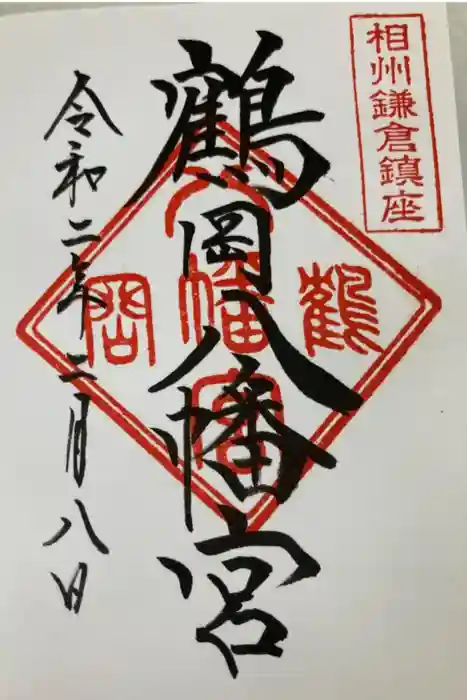 相州鎌倉鎮座
鶴岡八幡宮
鶴
八幡宮
岡
令和二年二月八日